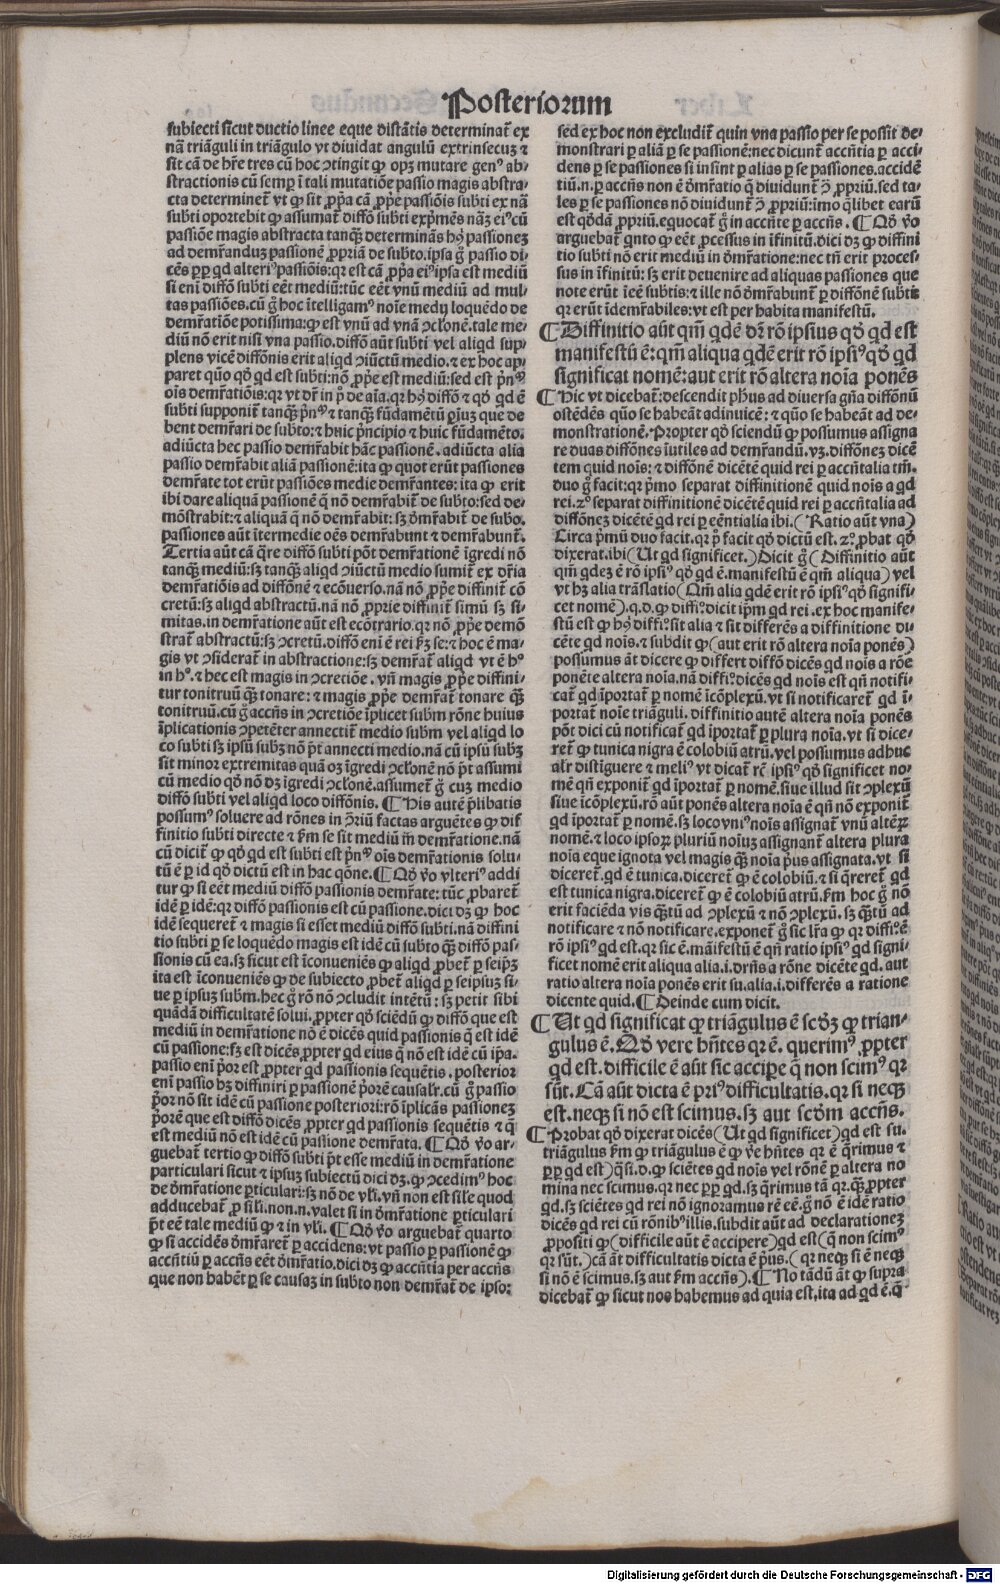 Posteriorum
subiecti sicut ductio linee eque distãtis determinat᷑ ex
nã triãguli in triãgulo vt diuidat angulũ extrinsecuʒ ⁊
sit cã de hr̃e tres cũ hoc ↄtingit ꝙ opʒ mutare genꝰ ab-
stractionis cũ semp̱ ĩ tali mutatiõe passio magis abstra-
cta determinet᷑ vt ꝙ sit ꝓp̃a cã ꝓp̃e passiõis subti ex nã
subti oportebit ꝙ assumat᷑ diffõ subti exp̃mẽs nãʒ eiꝰ cũ
passiõe magis abstracta tanqʒ determinãs hꝰ passioneʒ
ad demr̃anduʒ passionẽ ꝓpriã de subto. ipsa g̃ passio di-
cẽs ꝓp̱ qd alteriꝰ passiõis: qꝛ est cã ꝓp̃a eiꝰ ipsa est mediũ
si eni diffõ subti eẽt mediũ: tũc eẽt vnũ mediũ ad mul-
tas passiões. cũ g̃ hoc ĩtelligamꝰ noĩe medij loquẽdo de
demr̃atiõe potissima: ꝙ est vnũ ad vnã ↄclonẽ. tale me-
diũ nõ erit nisi vna passio. diffõ aũt subti vel aliqd sup-
plens vicẽ diffõnis erit aliqd ↄiũctũ medio. ⁊ ex hoc ap-
paret quõ qð qd est subti: nõ ꝓp̃e est mediũ: sed est p̃nᵐ
oĩs demr̃atiõis: qꝛ vt dr̃ in p̊ de aĩa. qꝛ hꝰ diffõ ⁊ qð qd ẽ
subti supponit᷑ tanqʒ p̃nᵐ ⁊ tanqʒ fũdamẽtũ oĩuʒ que de
bent demr̃ari de subto: ⁊ huic p̃ncipio ⁊ huic fũdamẽto.
adiũcta hec passio demr̃abit hãc passionẽ. adiũcta alia
passio demr̃abit aliã passionẽ: ita ꝙ quot erũt passiones
demr̃ate tot erũt passiões medie demr̃antes: ita ꝙ erit
ibi dare aliquã passionẽ q̃ nõ demr̃abit᷑ de subto: sed de-
mõstrabit: ⁊ aliquã q̃ nõ demr̃abit: sʒ ðmr̃abit᷑ de subo.
passiones aũt ĩtermedie oẽs demr̃abunt ⁊ demr̃abunt᷑.
Tertia aũt cã q̃re diffõ subti põt demr̃ationẽ ĩgredi nõ
tanqʒ mediũ: sʒ tanqʒ aliqd ↄiũctũ medio sumit᷑ ex dr̃ia
demr̃atiõis ad diffõnẽ ⁊ ecõuerso. nã nõ ꝓp̃e diffinit᷑ cõ
cretũ: sʒ aliqd abstractũ. nã nõ ꝓprie diffinit᷑ simũ sʒ si-
mitas. in demr̃atione aũt est ecõtrario. qꝛ nõ ꝓp̃e demõ
strat᷑ abstractũ: sʒ ↄcretũ. diffõ eni ẽ rei ẜm se: ⁊ hoc ẽ ma-
gis vt ↄsiderat᷑ in abstractione: sʒ demr̃at᷑ aliqd vt ẽ h°
in h°. ⁊ hec est magis in ↄcretiõe. vñ magis ꝓp̃e diffini-
tur tonitruũ qʒ̃ tonare: ⁊ magis ꝓp̃e demr̃at᷑ tonare qʒ̃
tonitruũ. cũ g̃ accñs in ↄcretiõe ĩplicet subm rõne huius
ĩplicationis ↄpetẽter annectit᷑ medio subm vel aliqd lo
co subti sʒ ipsũ subʒ nõ p̃t annecti medio. nã cũ ipsũ subʒ
sit minor extremitas quã oʒ ĩgredi ↄclonẽ nõ p̃t assumi
cũ medio qð nõ dʒ ĩgredi ↄclonẽ. assumet᷑ g̃ cuʒ medio
diffõ subti vel aliqd loco diffõnis. ¶ His autẽ p̃libatis
possumꝰ soluere ad rõnes in ↄriũ factas arguẽtes ꝙ dif
finitio subti directe ⁊ ẜm se sit mediũ in demr̃atione. nã
cũ dicit᷑ ꝙ qð qd est subti est p̃nᵐ oĩs demr̃ationis solu-
tũ ẽ p̱ id qð dictũ est in hac qõne. ¶ Qð v̊o vlteriꝰ addi
tur ꝙ si eẽt mediũ diffõ passionis demr̃ate: tũc ꝓbaret᷑
idẽ p̱ idẽ: qꝛ diffõ passionis est cũ passione. dici dʒ ꝙ hoc
idẽ sequeret᷑ ⁊ magis si esset mediũ diffõ subti. nã diffini
tio subti p̱ se loquẽdo magis est idẽ cũ subto qʒ̃ diffõ pas-
sionis cũ ea. sʒ sicut est ĩcouueniẽs ꝙ aliqd ꝓbet᷑ p̱ seip̃ʒ
ita est ĩconueniẽs ꝙ de subiecto ꝓbet᷑ aliqd p̱ seipsuʒ si-
ue p̱ ipsuʒ subm. hec g̃ rõ nõ ↄcludit intẽtũ: sʒ petit sibi
quãdã difficultatẽ solui. ꝓpter qð sciẽdũ ꝙ diffõ que est
mediũ in demr̃atione nõ ẽ dicẽs quid passionis q̃ est idẽ
cũ passione: sʒ est dicẽs ꝓpter qd eius q̃ nõ est idẽ cũ ip̃a.
passio eni p̃or est ꝓpter qd passionis sequẽtis. posterior
eni passio hʒ diffiniri p̱ passionẽ p̃orẽ causalr̃. cũ g̃ passio
p̃or nõ sit idẽ cũ passione posteriori: rõ ĩplicãs passioneʒ
p̃orẽ que est diffõ dicẽs ꝓpter qd passionis sequẽtis ⁊ q̃
est mediũ nõ est idẽ cũ passione demr̃ata. ¶ Qð v̊o ar-
guebat᷑ tertio ꝙ diffõ subti p̃t esse mediũ in demr̃atione
particulari sicut ⁊ ipsuʒ subiectũ dici dʒ. ꝙ ↄcedimꝰ hoc
de ðmr̃atione p̱ticulari: sʒ nõ de vl̃i. vñ non est sile quod
adducebat᷑ ꝓ sili. non.n. valet si in ðmr̃atione p̱ticulari
p̃t eẽ tale mediũ ꝙ ⁊ in vl̃i. ¶ Qð v̊o arguebat᷑ quarto
ꝙ si accidẽs ðmr̃aret᷑ p̱ accidens: vt passio p̱ passionẽ ꝙ
accñtiũ p̱ accñs eẽt ðmr̃atio. dici dʒ ꝙ accñtia per accñs
que non habẽt p̱ se causaʒ in subto non demr̃at᷑ de ipso:
sed ex hoc non excludit᷑ quin vna passio per se possit de-
monstrari p̱ aliã p̱ se passionẽ: nec dicunt᷑ accñtia p̱ acci
dens p̱ se passiones si insint p̱ alias p̱ se passiones. accidẽ
tiũ.n. p̱ accñs non ẽ ðmr̃atio q̃ diuidunt᷑ ↄ̃ ꝓpriũ. sed ta-
les p̱ se passiones nõ diuidunt᷑ ↄ̃ ꝓpriũ: imo qlibet earũ
est qðdã ꝓpriũ. equocat᷑ g̃ in accñte p̱ accñs. ¶ Qð v̊o
arguebat᷑ qnto ꝙ eẽt ꝓcessus in ĩfinitũ. dici dʒ ꝙ diffini
tio subti nõ erit mediũ in ðmr̃atione: nec tñ erit proces-
sus in ĩfinitũ: sʒ erit deuenire ad aliquas passiones que
note erũt ĩeẽ subtis: ⁊ ille nõ ðmr̃abunt᷑ p̱ diffõnẽ subtis
qꝛ erũt ĩdemr̃abiles: vt est per habita manifestũ.
¶ Diffinitio aũt qm̃ qdẽ dr̃ rõ ipsius qð qd est
manifestũ ẽ: qm̃ aliqua qdẽ erit rõ ipsiꝰ qð qd
significat nomẽ: aut erit rõ altera noĩa ponẽs
¶ Hic vt dicebat᷑: descendit phus ad diuersa gña diffõnũ
ostẽdẽs quõ se habeãt adinuicẽ: ⁊ quõ se habeãt ad de-
monstrationẽ. Propter qð sciendũ ꝙ possumus assigna
re duas diffõnes ĩutiles ad demr̃andũ. vʒ. diffõneʒ dicẽ
tem quid noĩs: ⁊ diffõnẽ dicẽtẽ quid rei p̱ accñtalia tm̃.
duo g̃ facit: qꝛ p̃mo separat diffinitionẽ quid noĩs a qd
rei. 2° separat diffinitionẽ dicẽtẽ quid rei p̱ accñtalia ad
diffõneʒ dicẽtẽ qd rei p̱ eẽntialia ibi. (Ratio aũt vna)
Circa p̃mũ duo facit. qꝛ p̊ facit qð dictũ est. 2°. ꝓbat qð
dixerat. ibi (Ut qd significet.) Dicit g̃ (Diffinitio aũt
qm̃ qdeʒ ẽ rõ ipsiꝰ qð qd ẽ. manifestũ ẽ qm̃ aliqua) vel
vt hʒ alia trãslatio (Qm̃ alia qdẽ erit rõ ipsiꝰ qð signifi-
cet nomẽ). q.d. ꝙ diffi° dicit ip̃m qd rei. ex hoc manife-
stũ est ꝙ hꝰ diffi° sit alia ⁊ sit differẽs a diffinitione di-
cẽte qd noĩs. ⁊ subdit ꝙ (aut erit rõ altera noĩa ponẽs)
possumus ãt dicere ꝙ differt diffõ dicẽs qd noĩs a rõe
ponẽte altera noĩa. nã diffi° dicẽs qd noĩs est qñ notifi-
cat᷑ qd ĩportat᷑ p̱ nomẽ ĩcõplexũ. vt si notificaret᷑ qd ĩ-
portat᷑ noĩe triãguli. diffinitio autẽ altera noĩa ponẽs
põt dici cũ notificat᷑ qd ĩportat᷑ p̱ plura noĩa. vt si dice-
ret᷑ ꝙ tunica nigra ẽ colobiũ atrũ. vel possumus adhuc
alr̃ distĩguere ⁊ meliꝰ vt dicat᷑ rẽ ipsiꝰ qð significet no-
mẽ qñ exponit᷑ qd ĩportat᷑ p̱ nomẽ. siue illud sit ↄplexũ
siue ĩcõplexũ. rõ aũt ponẽs altera noĩa ẽ qñ nõ exponit᷑
qd ĩportat᷑ p̱ nomẽ. sʒ loco vniꝰ noĩs assignat᷑ vnũ alteꝝ
nomẽ. ⁊ loco ipsoꝝ pluriũ noĩuʒ assignant᷑ altera plura
noĩa eque ignota vel magis qʒ̃ noĩa p̱us assignata. vt si
diceret᷑. qd ẽ tunica. diceret᷑ ꝙ ẽ colobiũ. ⁊ si q̃reret᷑ qd
est tunica nigra. diceret᷑ ꝙ ẽ colobiũ atrũ. ẜm hoc g̃ nõ
erit faciẽda vis qʒ̃tũ ad ↄplexũ ⁊ nõ ↄplexũ. sʒ qʒ̃tũ ad
notificare ⁊ nõ notificare. exponet᷑ g̃ sic lr̃a ꝙ qꝛ diffi° ẽ
rõ ipsiꝰ qd est. qꝛ sic ẽ. mãifestũ ẽ qñ ratio ipsiꝰ qd signi-
ficet nomẽ erit aliqua alia. i. dr̃ns a rõne dicẽte qd. aut
ratio altera noĩa ponẽs erit su. alia. i. differẽs a ratione
dicente quid. ¶ Deinde cum dicit.
¶ Ut qd significat ꝙ triãgulus ẽ scðʒ ꝙ trian-
gulus ẽ. Qð vere hñtes qꝛ ẽ. querimꝰ ꝓpter
qd est. difficile ẽ aũt sic accipe q̃ non scimꝰ qꝛ
sũt. Cã aũt dicta ẽ priꝰ difficultatis. qꝛ si neqʒ
est. neqʒ si nõ est scimus. sʒ aut scðm accñs.
¶ Probat qð dixerat dicẽs (Ut qd significet) qd est su.
triãgulus ẜm ꝙ triãgulus ẽ ꝙ v̊e hñtes qꝛ ẽ q̃rimus ⁊
p̱p̱ qd est) q̃si. d. ꝙ sciẽtes qd noĩs vel rõnẽ p̱ altera no
mina nec scimus. qꝛ nec p̱p̱ qd. sʒ q̃rimus tã qꝛ. qʒ̃ ꝓpter
qd. sʒ sciẽtes qd rei nõ ignoramus rẽ eẽ. g̃ nõ ẽ idẽ ratio
dicẽs qd rei cũ rõnibꝰ illis. subdit aũt ad declarationeʒ
ꝓpositi ꝙ (difficile aũt ẽ accipere) qd est (q̃ non scimꝰ
qꝛ sũt.) cã ãt difficultatis dicta ẽ p̱us. (qꝛ neqʒ si ẽ neqʒ
si nõ ẽ scimus. sʒ aut ẜm accñs). ¶ No tãdũ ãt ꝙ supra
dicebat᷑ ꝙ sicut nos habemus ad quia est, ita ad qd ẽ. q̃
Digitalisierung gefördert durch die Deutsche Forschungsgemeinschaft - DFG